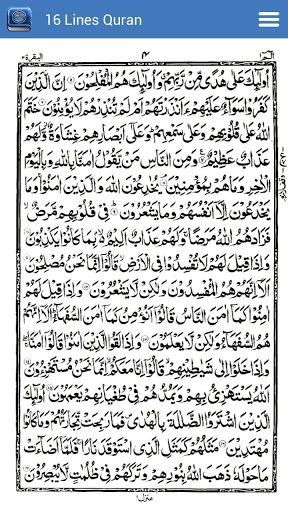 16 Lines Quran
الٓمّٓ ١
البقرة ٢
اُولٰٓئِكَ عَلٰى هُدًى مِّنْ رَّبِّهِمْ وَاُولٰٓئِكَ هُمُ الْمُفْلِحُوْنَ اِنَّ الَّذِيْنَ
كَفَرُوْا سَوَآءٌ عَلَيْهِمْ ءَاَنْذَرْتَهُمْ اَمْ لَمْ تُنْذِرْهُمْ لَا يُؤْمِنُوْنَ خَتَمَ
اللّٰهُ عَلٰى قُلُوْبِهِمْ وَعَلٰى سَمْعِهِمْ وَعَلٰٓى اَبْصَارِهِمْ غِشَاوَةٌ وَّلَهُمْ
عَذَابٌ عَظِيْمٌ وَمِنَ النَّاسِ مَنْ يَّقُوْلُ اٰمَنَّا بِاللّٰهِ وَبِالْيَوْمِ
الْاٰخِرِ وَمَا هُمْ بِمُؤْمِنِيْنَ يُخٰدِعُوْنَ اللّٰهَ وَالَّذِيْنَ اٰمَنُوْا وَمَا
يَخْدَعُوْنَ اِلَّآ اَنْفُسَهُمْ وَمَا يَشْعُرُوْنَ فِيْ قُلُوْبِهِمْ مَّرَضٌ
فَزَادَهُمُ اللّٰهُ مَرَضًا وَلَهُمْ عَذَابٌ اَلِيْمٌ بِمَا كَانُوْا يَكْذِبُوْنَ
وَاِذَا قِيْلَ لَهُمْ لَا تُفْسِدُوْا فِي الْاَرْضِ قَالُوْٓا اِنَّمَا نَحْنُ مُصْلِحُوْنَ
اَلَآ اِنَّهُمْ هُمُ الْمُفْسِدُوْنَ وَلٰكِنْ لَّا يَشْعُرُوْنَ وَاِذَا قِيْلَ لَهُمْ
اٰمِنُوْا كَمَآ اٰمَنَ النَّاسُ قَالُوْٓا اَنُؤْمِنُ كَمَآ اٰمَنَ السُّفَهَآءُ اَلَآ اِنَّهُمْ
هُمُ السُّفَهَآءُ وَلٰكِنْ لَّا يَعْلَمُوْنَ وَاِذَا لَقُوا الَّذِيْنَ اٰمَنُوْا قَالُوْٓا اٰمَنَّا
وَاِذَا خَلَوْا اِلٰى شَيٰطِيْنِهِمْ قَالُوْٓا اِنَّا مَعَكُمْ اِنَّمَا نَحْنُ مُسْتَهْزِءُوْنَ
اَللّٰهُ يَسْتَهْزِئُ بِهِمْ وَيَمُدُّهُمْ فِيْ طُغْيَانِهِمْ يَعْمَهُوْنَ اُولٰٓئِكَ
الَّذِيْنَ اشْتَرَوُا الضَّلٰلَةَ بِالْهُدٰى فَمَا رَبِحَتْ تِّجَارَتُهُمْ وَمَا كَانُوْا
مُهْتَدِيْنَ مَثَلُهُمْ كَمَثَلِ الَّذِي اسْتَوْقَدَ نَارًا فَلَمَّآ اَضَآءَتْ
مَا حَوْلَهٗ ذَهَبَ اللّٰهُ بِنُوْرِهِمْ وَتَرَكَهُمْ فِيْ ظُلُمٰتٍ لَّا يُبْصِرُوْنَ
منزل ١